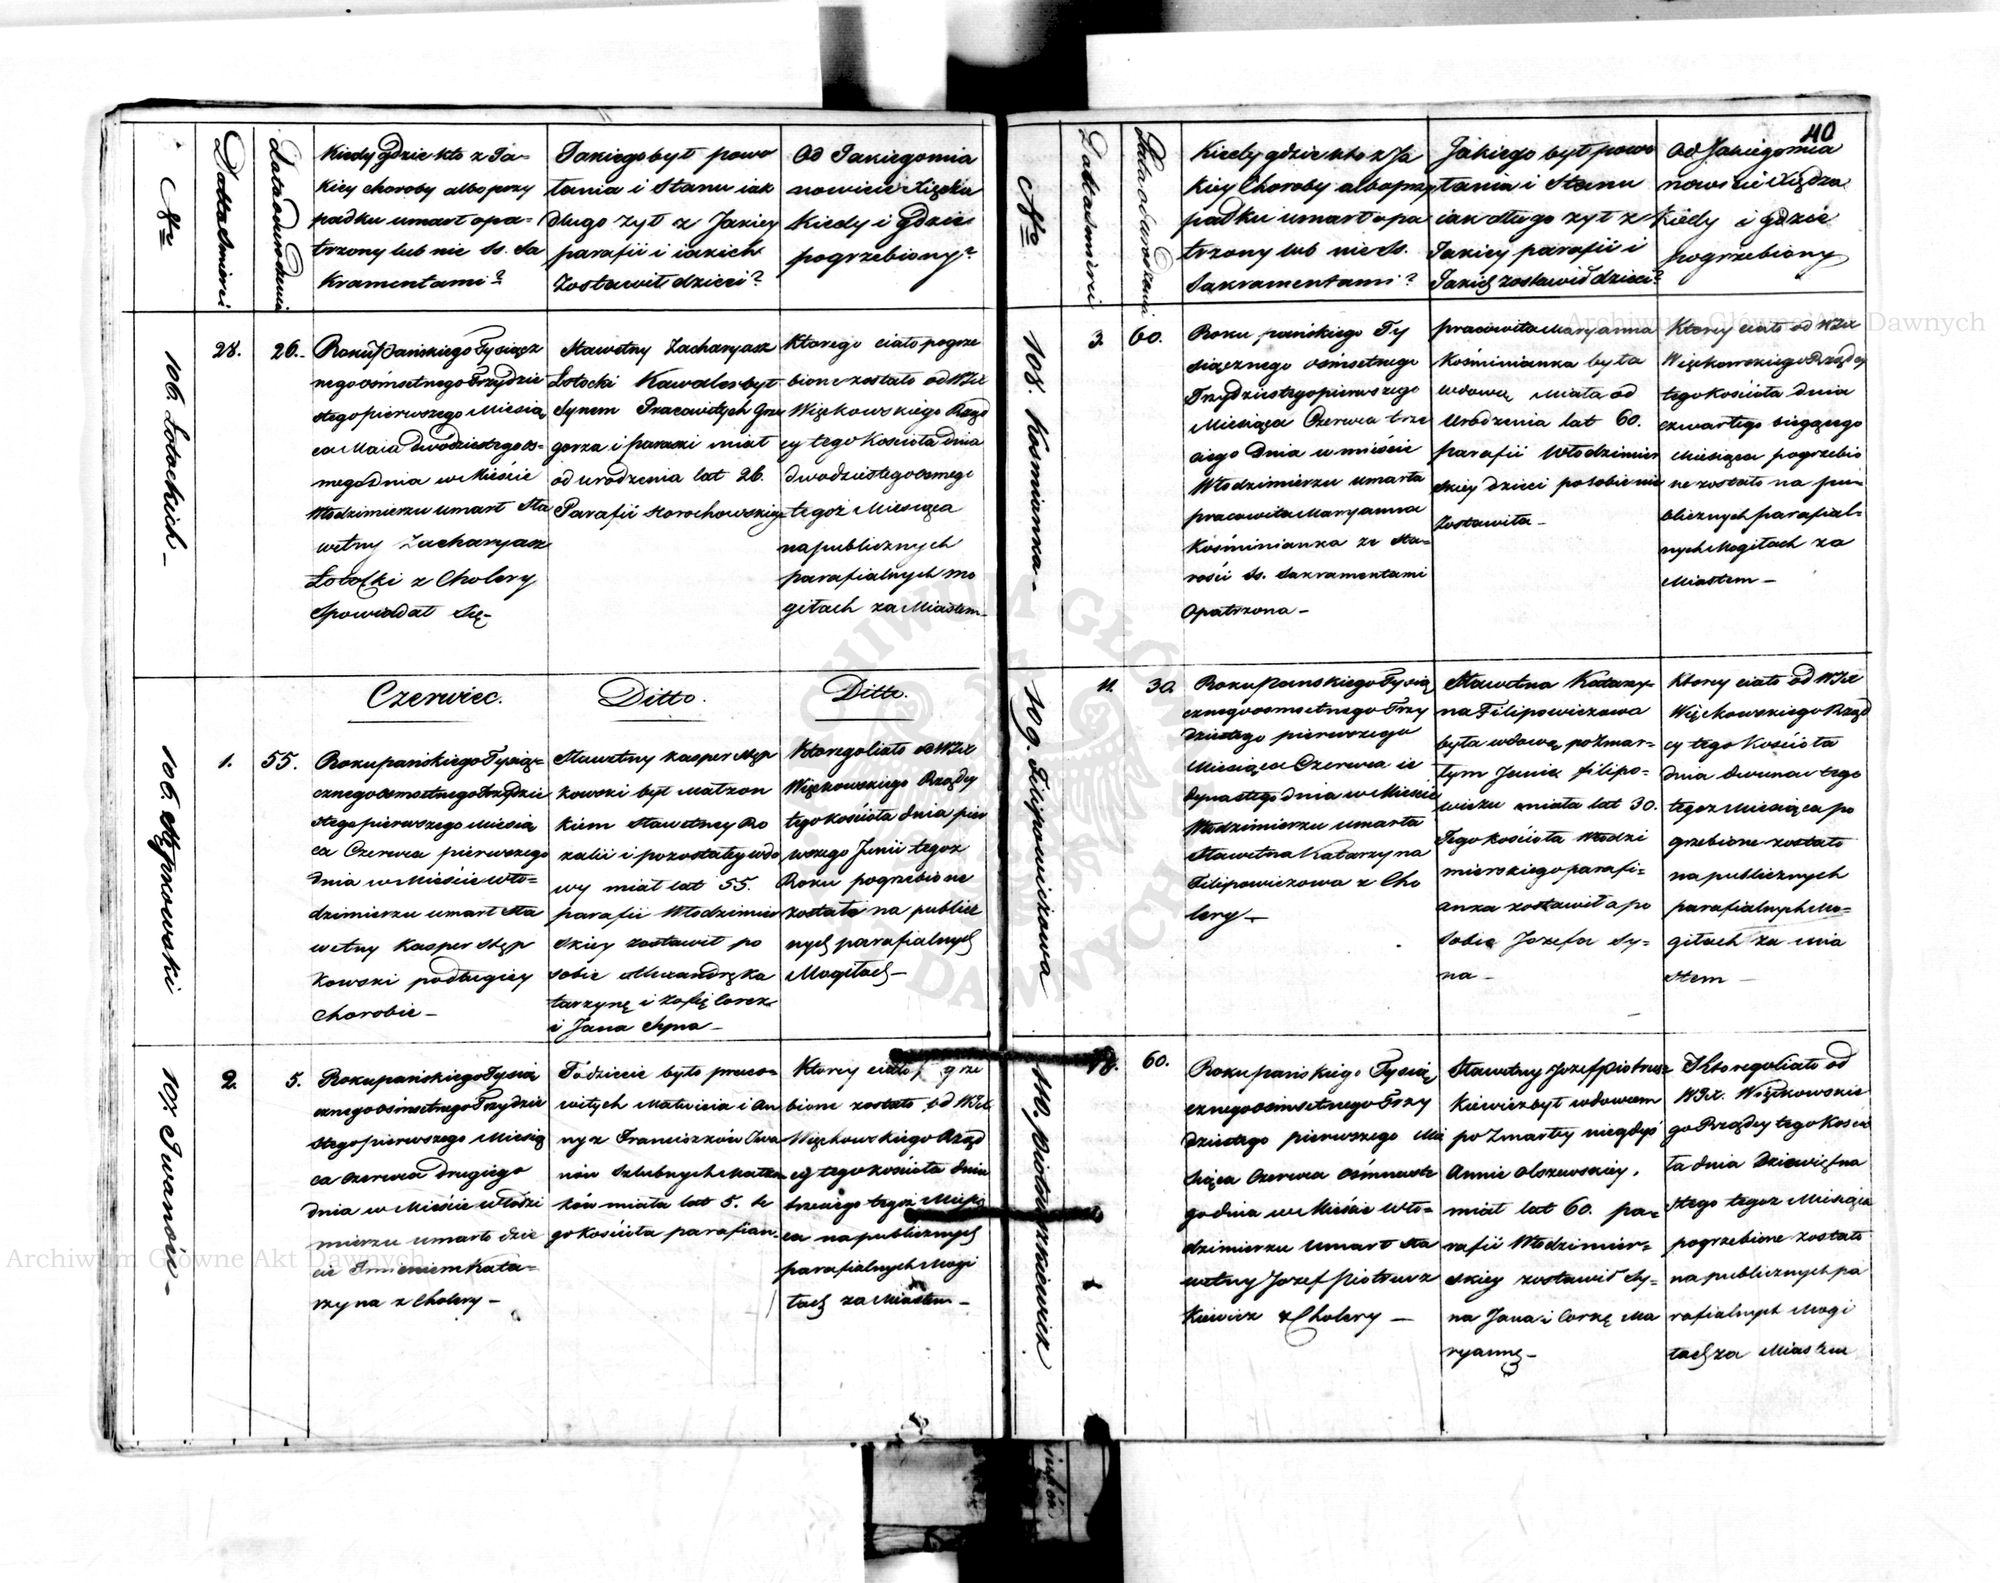 Nro
Datta Śmierci
Datta od urodzenia
Kiedy gdzie kto z Ja-
kiey choroby albo przy
padku umarł opa-
trzony lub nie SS. Sa
kramentami?
Jakiego był powo
łania i Stanu iak
długo żył z Jakiey
parafii i iakich
Zostawił dzieci?
Od Jakiego mia
nowicie Xiędza
Kiedy i gdzie
pogrzebiony?
106. Łotockich –
28.
26.-
Roku Pańskiego Tysiącz
nego ośmsetnego Trzydzie
stego pierwszego Miesią
ca Maia dwódziestego os-
mego Dnia w Mieście
Włodzimierzu umarł Sta
wetny Zacharyasz
Łotocki z Cholery
Spowiadał Się-
Stawetny Zacharyasz
Łotocki Kawaler był
Synem Pracowitych Grze
gorza i Paraski miał
od urodzenia lat 26.
Parafii Horochowskiey
Ktorego ciało pogrze
bione zostało od WJX
Więckowskiego Rząd
cy tego Kościoła dnia
dwódziestego osmego
tegoż Miesiąca
na publicznych
parafialnych mo
giłach za Miastem-
Czerwiec.
Ditto.
Ditto.
106. Stępkowski
1.
55.
Roku pańskiego Tysią-
cznego osmsetnego Trzydzie
stego pierwszego Miesią
ca Czerwca pierwszego
dnia w Mieście Wło-
dzimierzu umarł Sta
wetny Kasper Stęp
kowski po długiey
chorobie –
Stawetny Kasper Stęp
kowski był Małżon
kiem Stawetney Ro
zalii i pozostałey wdo
wy miał lat 55.
parafii Włodzimier
skiey zostawił po
sobie Alexandrę Ka
tarzynę i Zofię Corek
i Jana Syna –
Ktorego Ciało od WJX
Więckowskiego Rządcy
tego Kościoła dnia pier
wszego Junii tegoz
Roku pogrzebione
zostało na public
nych parafialnych
Mogiłach –
107. Iwanow –
2.
5.
Roku pańskiego Tysią
cznego osmsetnego Trzydzie
stego pierwszego Miesią
ca Czerwca drugiego
dnia w Mieście Włodzi
mierzu umarło dzie
cie Imieniem Kata-
rzyna z Cholery –
To dziecie było praco-
witych Matwieia i An
ny z Franciszków Iwa
nów Szlubnych Małżon
ków miała lat 5. te
go kościoła parafian.
Ktorey ciało p grze
bione zostało od WJX
Więckowskiego Rząd
cy tego kościoła dnia
trzeciego tegoż Miesią
ca na publicznych
parafialnych Mogi
łach za Miastem –
40
Nro
Datta Śmierci
Datta od urodzenia
Kiedy gdzie kto z Ja
kiey Choroby albo przy
padku umarł opa
trzony lub nie SS.
Sakramentami?
Jakiego był powo
łania i Stanu
iak długo żył z
Jakiey parafii i
Jakich zostawił dzieci?
Od Jakiego mia
nowicie Xiędza
Kiedy i gdzie
pogrzebiony
108. Kośmianka –
3.
60.
Roku pańskiego Ty
siącznego ośmsetnego
Trzydziestego pierwszego
Miesiąca Czerwca trze
ciego Dnia w mieście
Włodzimierzu umarła
pracowita Maryanna
Kośminianka ze Sta-
rości SS. Sakramentami
Opatrzona –
pracowita Maryanna
Kośminianka była
wdową Miała od
Urodzenia lat 60.
parafii Włodzimier
skiey dzieci po sobie nie
Zostawiła –
Ktorey ciało od WJX
Więckowskiego Rządcy
tego Kościoła dnia
czwartego biegącego
Miesiąca pogrzebio
ne zostało na pu-
blicznych parafial-
nych Mogiłach za
Miastem –
109. Filipowiczowa
11.
30.
Roku Pańskiego Tysią
cznego osmsetnego Trzy
dziestego pierwszego
Miesiąca Czerwca ie
dynastego dnia w Mieście
Włodzimierzu umarła
Stawetna Katarzyna
Filipowiczowa z Cho
lery –
Stawetna Katarzy-
na Filipowiczowa
była wdową po Zmar-
łym Janie Filipo-
wiczu miała lat 30.
Tego kościoła Włodzi
mierskiego parafi-
anka zostawiła po
Sobie Jozefa Sy-
na –
Ktorey ciało od WJX
Więckowskiego Rząd
cy tego Kościoła
dnia dwunastego
tegoz Miesiąca po
grzebione zostało
na publicznych
parafialnych Mo-
giłach za mia
stem –
110. Piotruszkiewicz
18.
60.
Roku pańskiego Tysią
cznego osmsetnego Trzy
dziestego pierwszego Mie
siąca Czerwca Osmnaste
go dnia w Mieście Wło-
dzimierzu umarł Sta
wetny Jozef Piotrusz
kiewicz z Cholery –
Stawetny Jozef Piotrusz
kiewicz był wdowcem
po Zmarłey niegdyś
Annie Olszewskiey.
miał lat 60. pa-
rafii Włodzimier-
skiey zostawił Sy-
na Jana i Corkę Ma
ryannę –
Ktorego Ciało od
WJX. Więckowskie
go Rządcy tego Kościo
ła dnia Dziewiętna
stego tegoz Miesiąca
pogrzebione zostało
na publicznych pa
rafialnych Mogi
łach za Miastem
Archiwum Główne Akt Dawnych
Archiwum Główne Akt Dawnych
ARCHIWUM GŁÓWNE AKT DAWNYCH